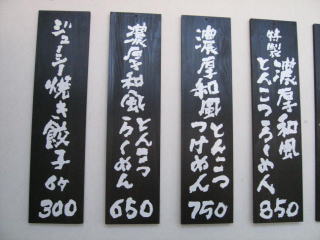 特製
濃厚和風
とんこつらぁめん
850
濃厚和風
とんこつ
つけめん
750
濃厚和風
とんこつ
らぁめん
650
ジューシー焼き餃子
6ケ
300